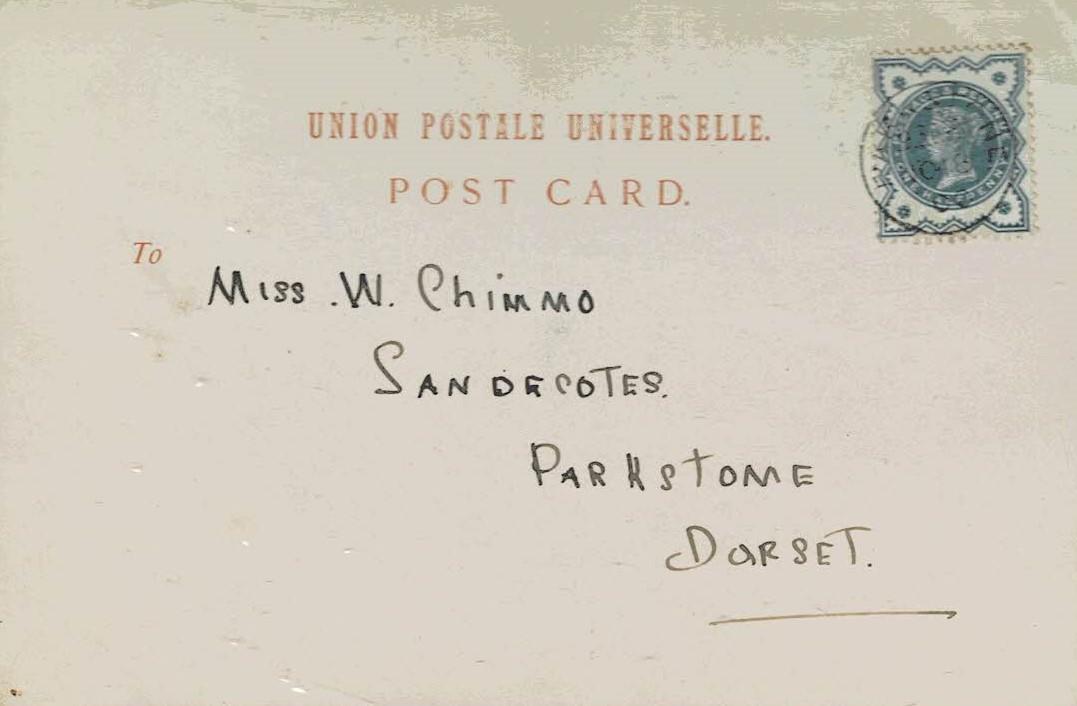 UNION POSTALE UNIVERSELLE.
POST CARD.
To
Miss .W. Chimmo
SANDECOTES.
PARKSTONE
DORSET.